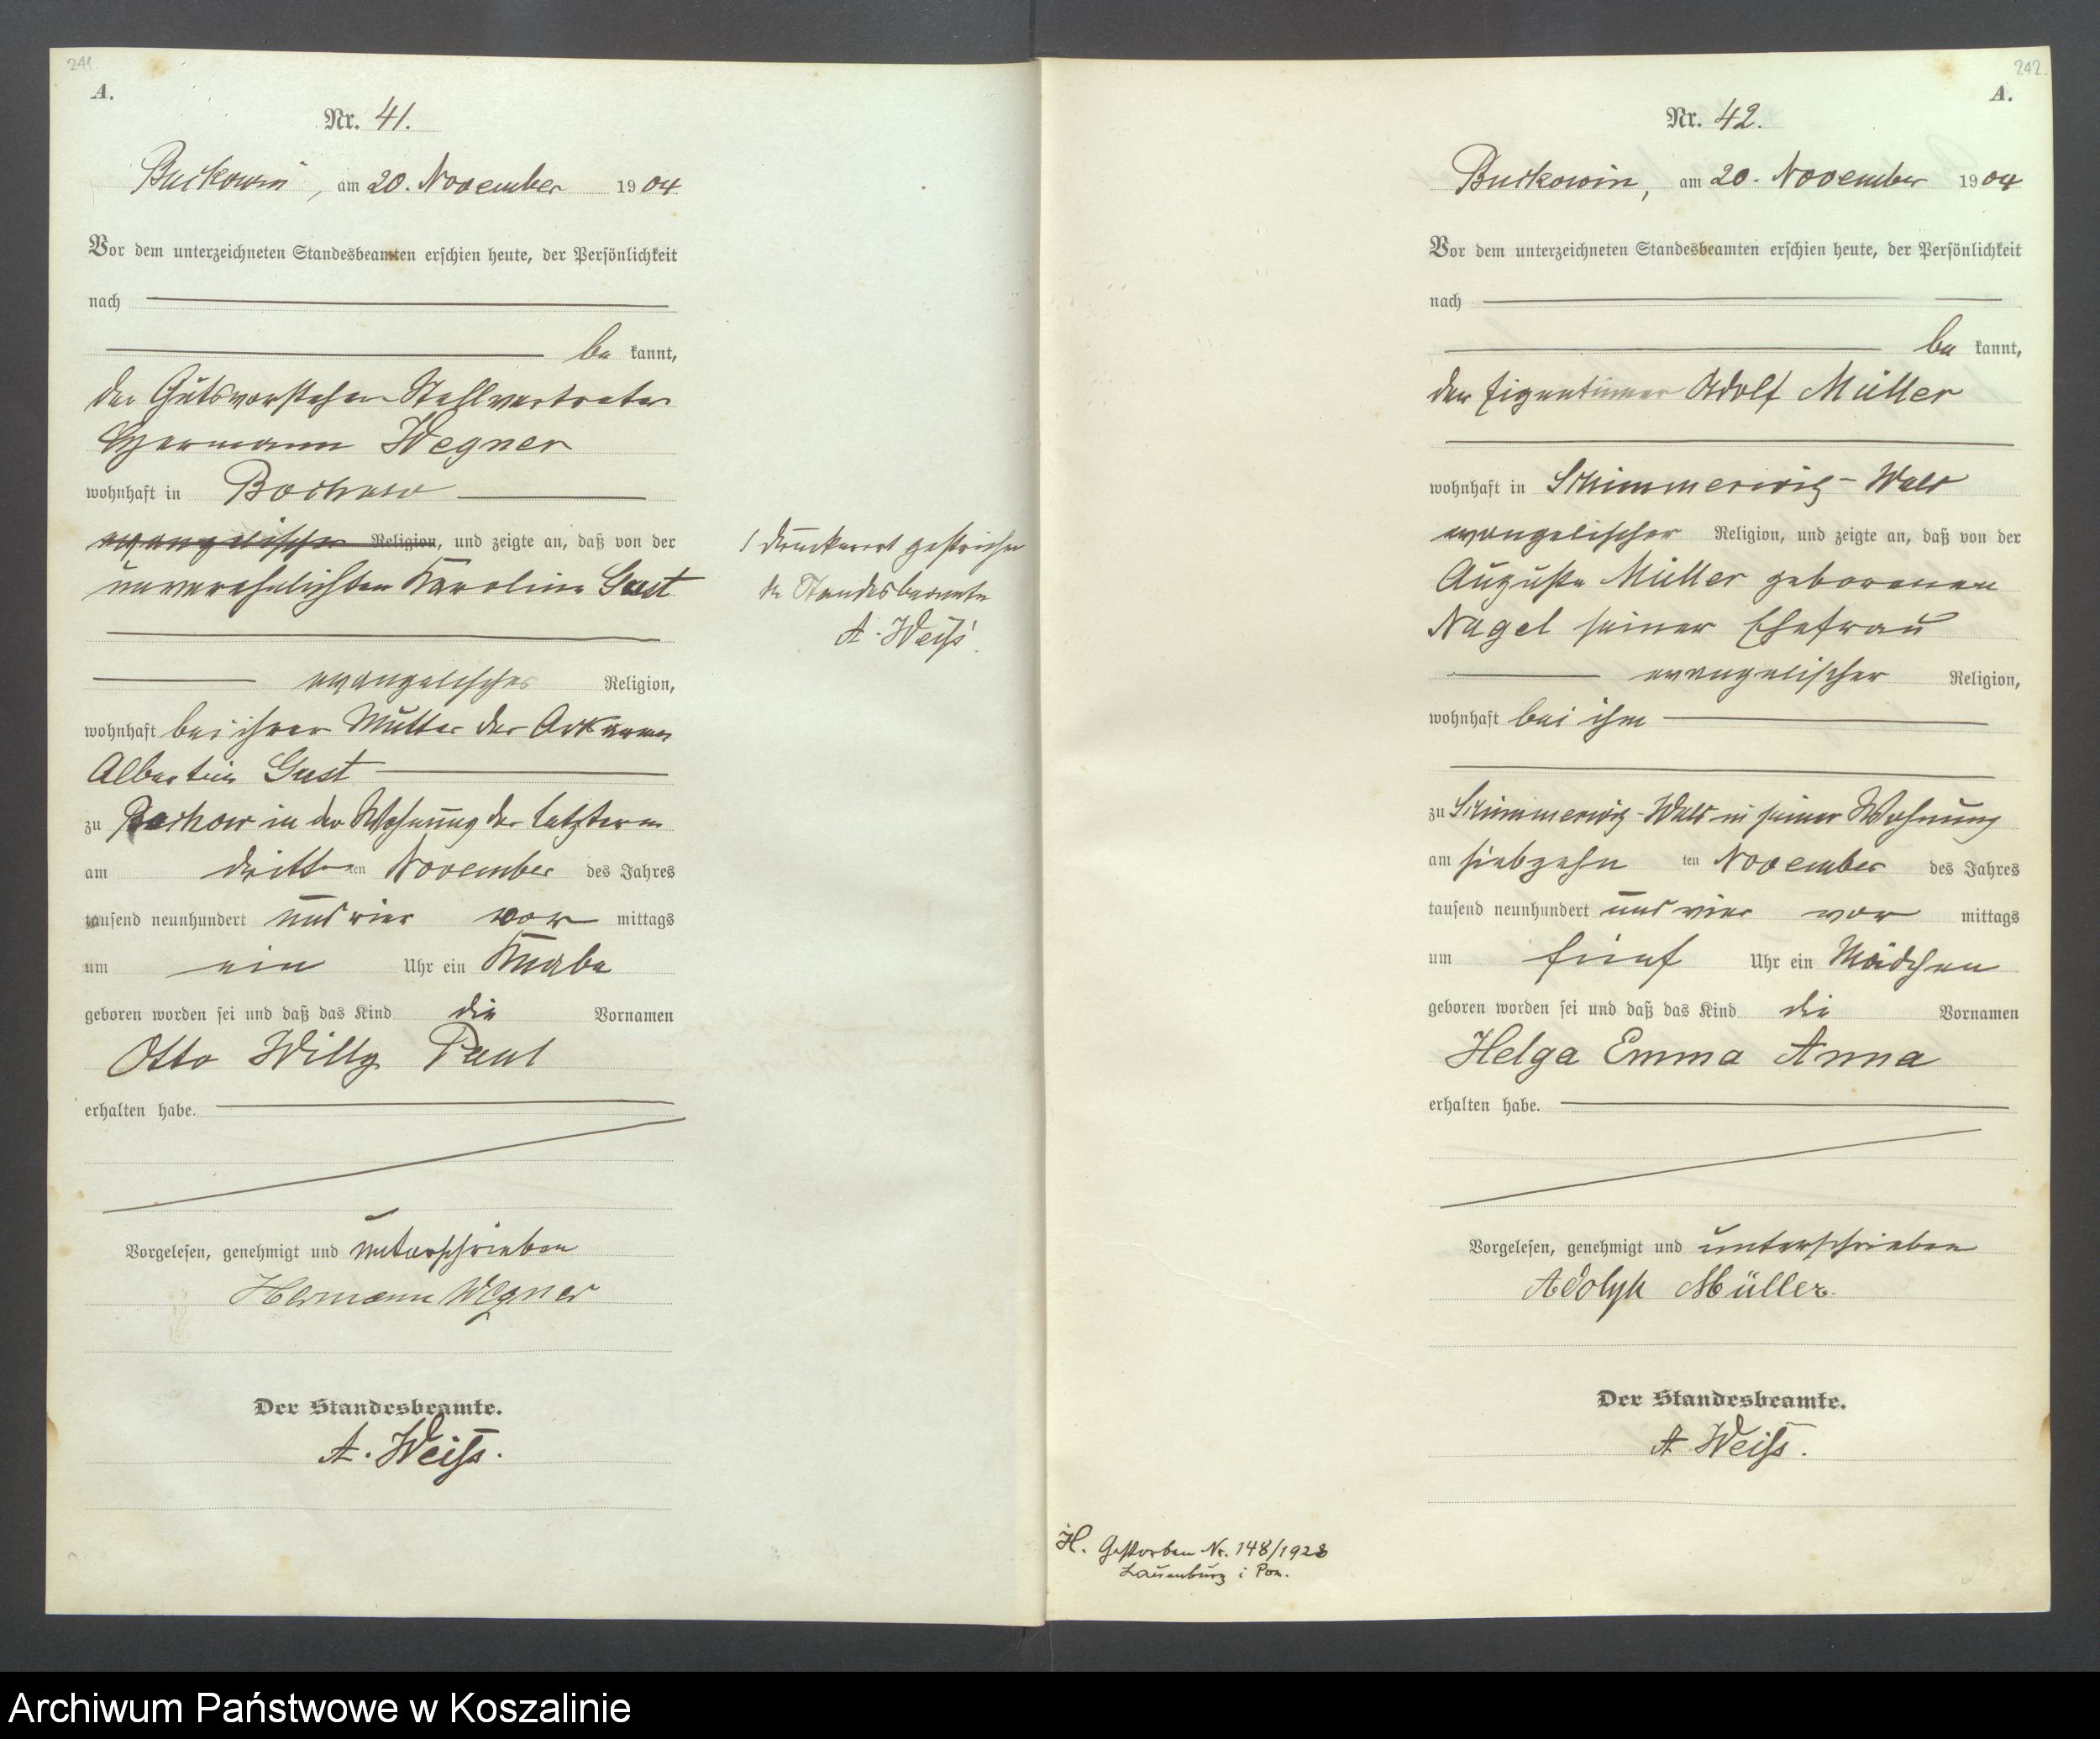 241
A.
Nr. 41.
Buckowin, am 20. November 1904
Vor dem unterzeichneten Standesbeamten erschien heute, der Persönlichkeit
nach
be kannt,
der Gutsvorsteher-Stellvertreter
Hermann Wegner
wohnhaft in Bochow
evangelischer Religion, und zeigte an, daß von der
unverehelichten Karoline Gust
evangelischer Religion,
wohnhaft bei ihrer Mutter der
Albertine Gust
zu Bochow in der Wohnung der letzteren
am dritten November des Jahres
tausend neunhundert und vier vor mittags
um ein Uhr ein Knabe
geboren worden sei und daß das Kind die Vornamen
Otto Willy Paul
erhalten habe.
Vorgelesen, genehmigt und unterschrieben
Hermann Wegner
Der Standesbeamte.
A. Weiß.
1 Druckwort gestrichen
der Standesbeamte
A. Weiß
242.
A.
Nr. 42.
Buckowin, am 20. November 1904
Vor dem unterzeichneten Standesbeamten erschien heute, der Persönlichkeit
nach
be kannt,
der Eigentümer Adolf Müller
wohnhaft in Schimmerwitz-Wald
evangelischer Religion, und zeigte an, daß von der
Auguste Müller geborenen
Nagel seiner Ehefrau
evangelischer Religion,
wohnhaft bei ihm
zu Schimmerwitz-Wald in seiner Wohnung
am siebzehn ten November des Jahres
tausend neunhundert und vier vor mittags
um fünf Uhr ein Mädchen
geboren worden sei und daß das Kind die Vornamen
Helga Emma Anna
erhalten habe.
Vorgelesen, genehmigt und unterschrieben
Adolph Müller.
Der Standesbeamte.
A Weiß.
H. Gestorben Nr. 148/1928
Lauenburg i Pom.
Archiwum Państwowe w Koszalinie